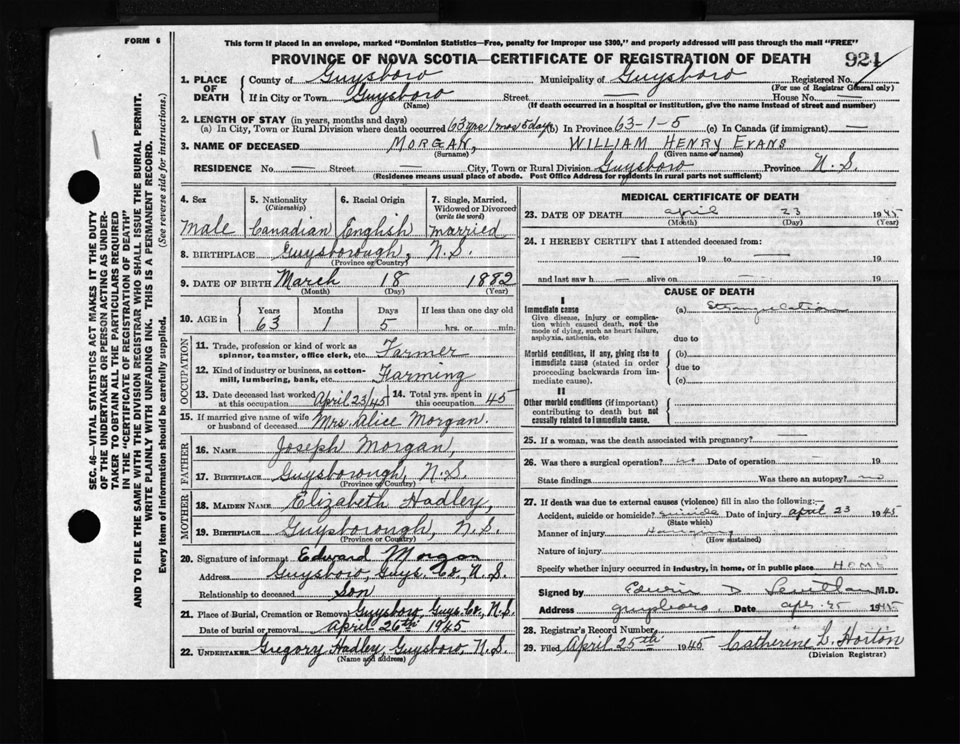 FORM 6
This form if placed in an envelope, marked "Dominion Statistics—Free, penalty for improper use $300," and properly addressed will pass through the mail "FREE"
PROVINCE OF NOVA SCOTIA—CERTIFICATE OF REGISTRATION OF DEATH
924
1. PLACE OF DEATH County of Guysboro Municipality of Guysboro Registered No.
(For use of Registrar General only)
If in City or Town Guysboro Street — House No. —
(Name) (If death occurred in a hospital or institution, give the name instead of street and number)
2. LENGTH OF STAY (in years, months and days)
(a) In City, Town or Rural Division where death occurred 63 yrs 1 mos 5 days (b) In Province 63-1-5 (c) In Canada (if immigrant) —
3. NAME OF DECEASED MORGAN, WILLIAM HENRY EVANS
(Surname) (Given name or names)
RESIDENCE No. — Street — City, Town or Rural Division Guysboro Province N.S.
(Residence means usual place of abode. Post Office Address for residents in rural parts not sufficient)
4. Sex Male
5. Nationality (Citizenship) Canadian
6. Racial Origin English
7. Single, Married, Widowed or Divorced (write the word) married
8. BIRTHPLACE Guysborough, N.S.
(Province or Country)
9. DATE OF BIRTH March 18 1882
(Month) (Day) (Year)
10. AGE in Years 63 Months 1 Days 5 If less than one day old
hrs. or min.
OCCUPATION
11. Trade, profession or kind of work as spinner, teamster, office clerk, etc. Farmer
12. Kind of industry or business, as cotton-mill, lumbering, bank, etc. Farming
13. Date deceased last worked at this occupation April 23/45
14. Total yrs. spent in this occupation 45
15. If married give name of wife or husband of deceased Mrs. Alice Morgan.
FATHER
16. NAME Joseph Morgan,
17. BIRTHPLACE Guysborough, N.S.
(Province or Country)
MOTHER
18. MAIDEN NAME Elizabeth Hadley,
19. BIRTHPLACE Guysborough, N.S.
(Province or Country)
20. Signature of informant Edward Morgan
Address Guysboro, Guys. Co. N.S.
Relationship to deceased Son
21. Place of Burial, Cremation or Removal Guysboro, Guys. Co., N.S.
Date of burial or removal April 26th 1945
22. UNDERTAKER Gregory Hadley, Guysboro, N.S.
(Name and address)
MEDICAL CERTIFICATE OF DEATH
23. DATE OF DEATH April 23 1945
(Month) (Day) (Year)
24. I HEREBY CERTIFY that I attended deceased from:
— 19 to — 19
and last saw h — alive on — 19
CAUSE OF DEATH
I
Immediate cause
Give disease, injury or complication which caused death, not the mode of dying, such as heart failure, asphyxia, asthenia, etc
(a) Strangulation
due to
Morbid conditions, if any, giving rise to immediate cause (stated in order proceeding backwards from immediate cause).
(b)
due to
(c)
II
Other morbid conditions (if important) contributing to death but not causally related to immediate cause.
25. If a woman, was the death associated with pregnancy? —
26. Was there a surgical operation? no Date of operation — 19
State findings Was there an autopsy? no
27. If death was due to external causes (violence) fill in also the following:—
Accident, suicide or homicide? suicide Date of injury April 23 1945
(State which)
Manner of injury Hanging
(How sustained)
Nature of injury
Specify whether injury occurred in industry, in home, or in public place HOME
Signed by M.D.
Address Guysboro Date Apr. 25 1945
28. Registrar's Record Number
29. Filed April 25th 1945 Catherine L. Horton
(Division Registrar)
SEC. 46—VITAL STATISTICS ACT MAKES IT THE DUTY
OF THE UNDERTAKER OR PERSON ACTING AS UNDER-
TAKER TO OBTAIN ALL THE PARTICULARS REQUIRED
IN THE "CERTIFICATE OF REGISTRATION OF DEATH"
AND TO FILE THE SAME WITH THE DIVISION REGISTRAR WHO SHALL ISSUE THE BURIAL PERMIT.
WRITE PLAINLY WITH UNFADING INK. THIS IS A PERMANENT RECORD.
Every item of information should be carefully supplied. (See reverse side for instructions.)